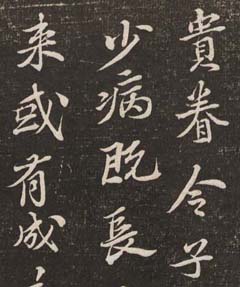 貴眷令子
少病既長
来或有成